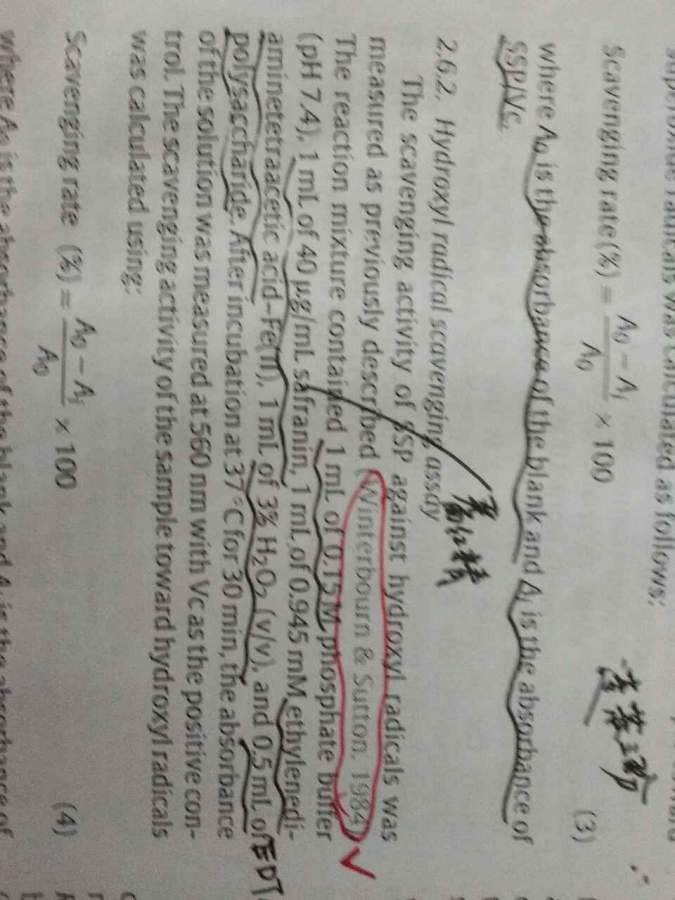 superoxide radicals was calculated as follows:
Scavenging rate (%) = A₀ − A₁ / A₀ × 100 (3)
where A₀ is the absorbance of the blank and A₁ is the absorbance of
SSP/Vc.
2.6.2. Hydroxyl radical scavenging assay
The scavenging activity of SSP against hydroxyl radicals was
measured as previously described (Winterbourn & Sutton, 1984).
The reaction mixture contained 1 mL of 0.15 M phosphate buffer
(pH 7.4), 1 mL of 40 μg/mL safranin, 1 mL of 0.945 mM ethylenedi-
aminetetraacetic acid–Fe(II), 1 mL of 3% H₂O₂ (v/v), and 0.5 mL of
EDT
polysaccharide. After incubation at 37 °C for 30 min, the absorbance
of the solution was measured at 560 nm with Vc as the positive con-
trol. The scavenging activity of the sample toward hydroxyl radicals
was calculated using:
Scavenging rate (%) = A₀ − A₁ / A₀ × 100 (4)
where A₀ is the absorbance of the blank and A₁ is the absorbance of